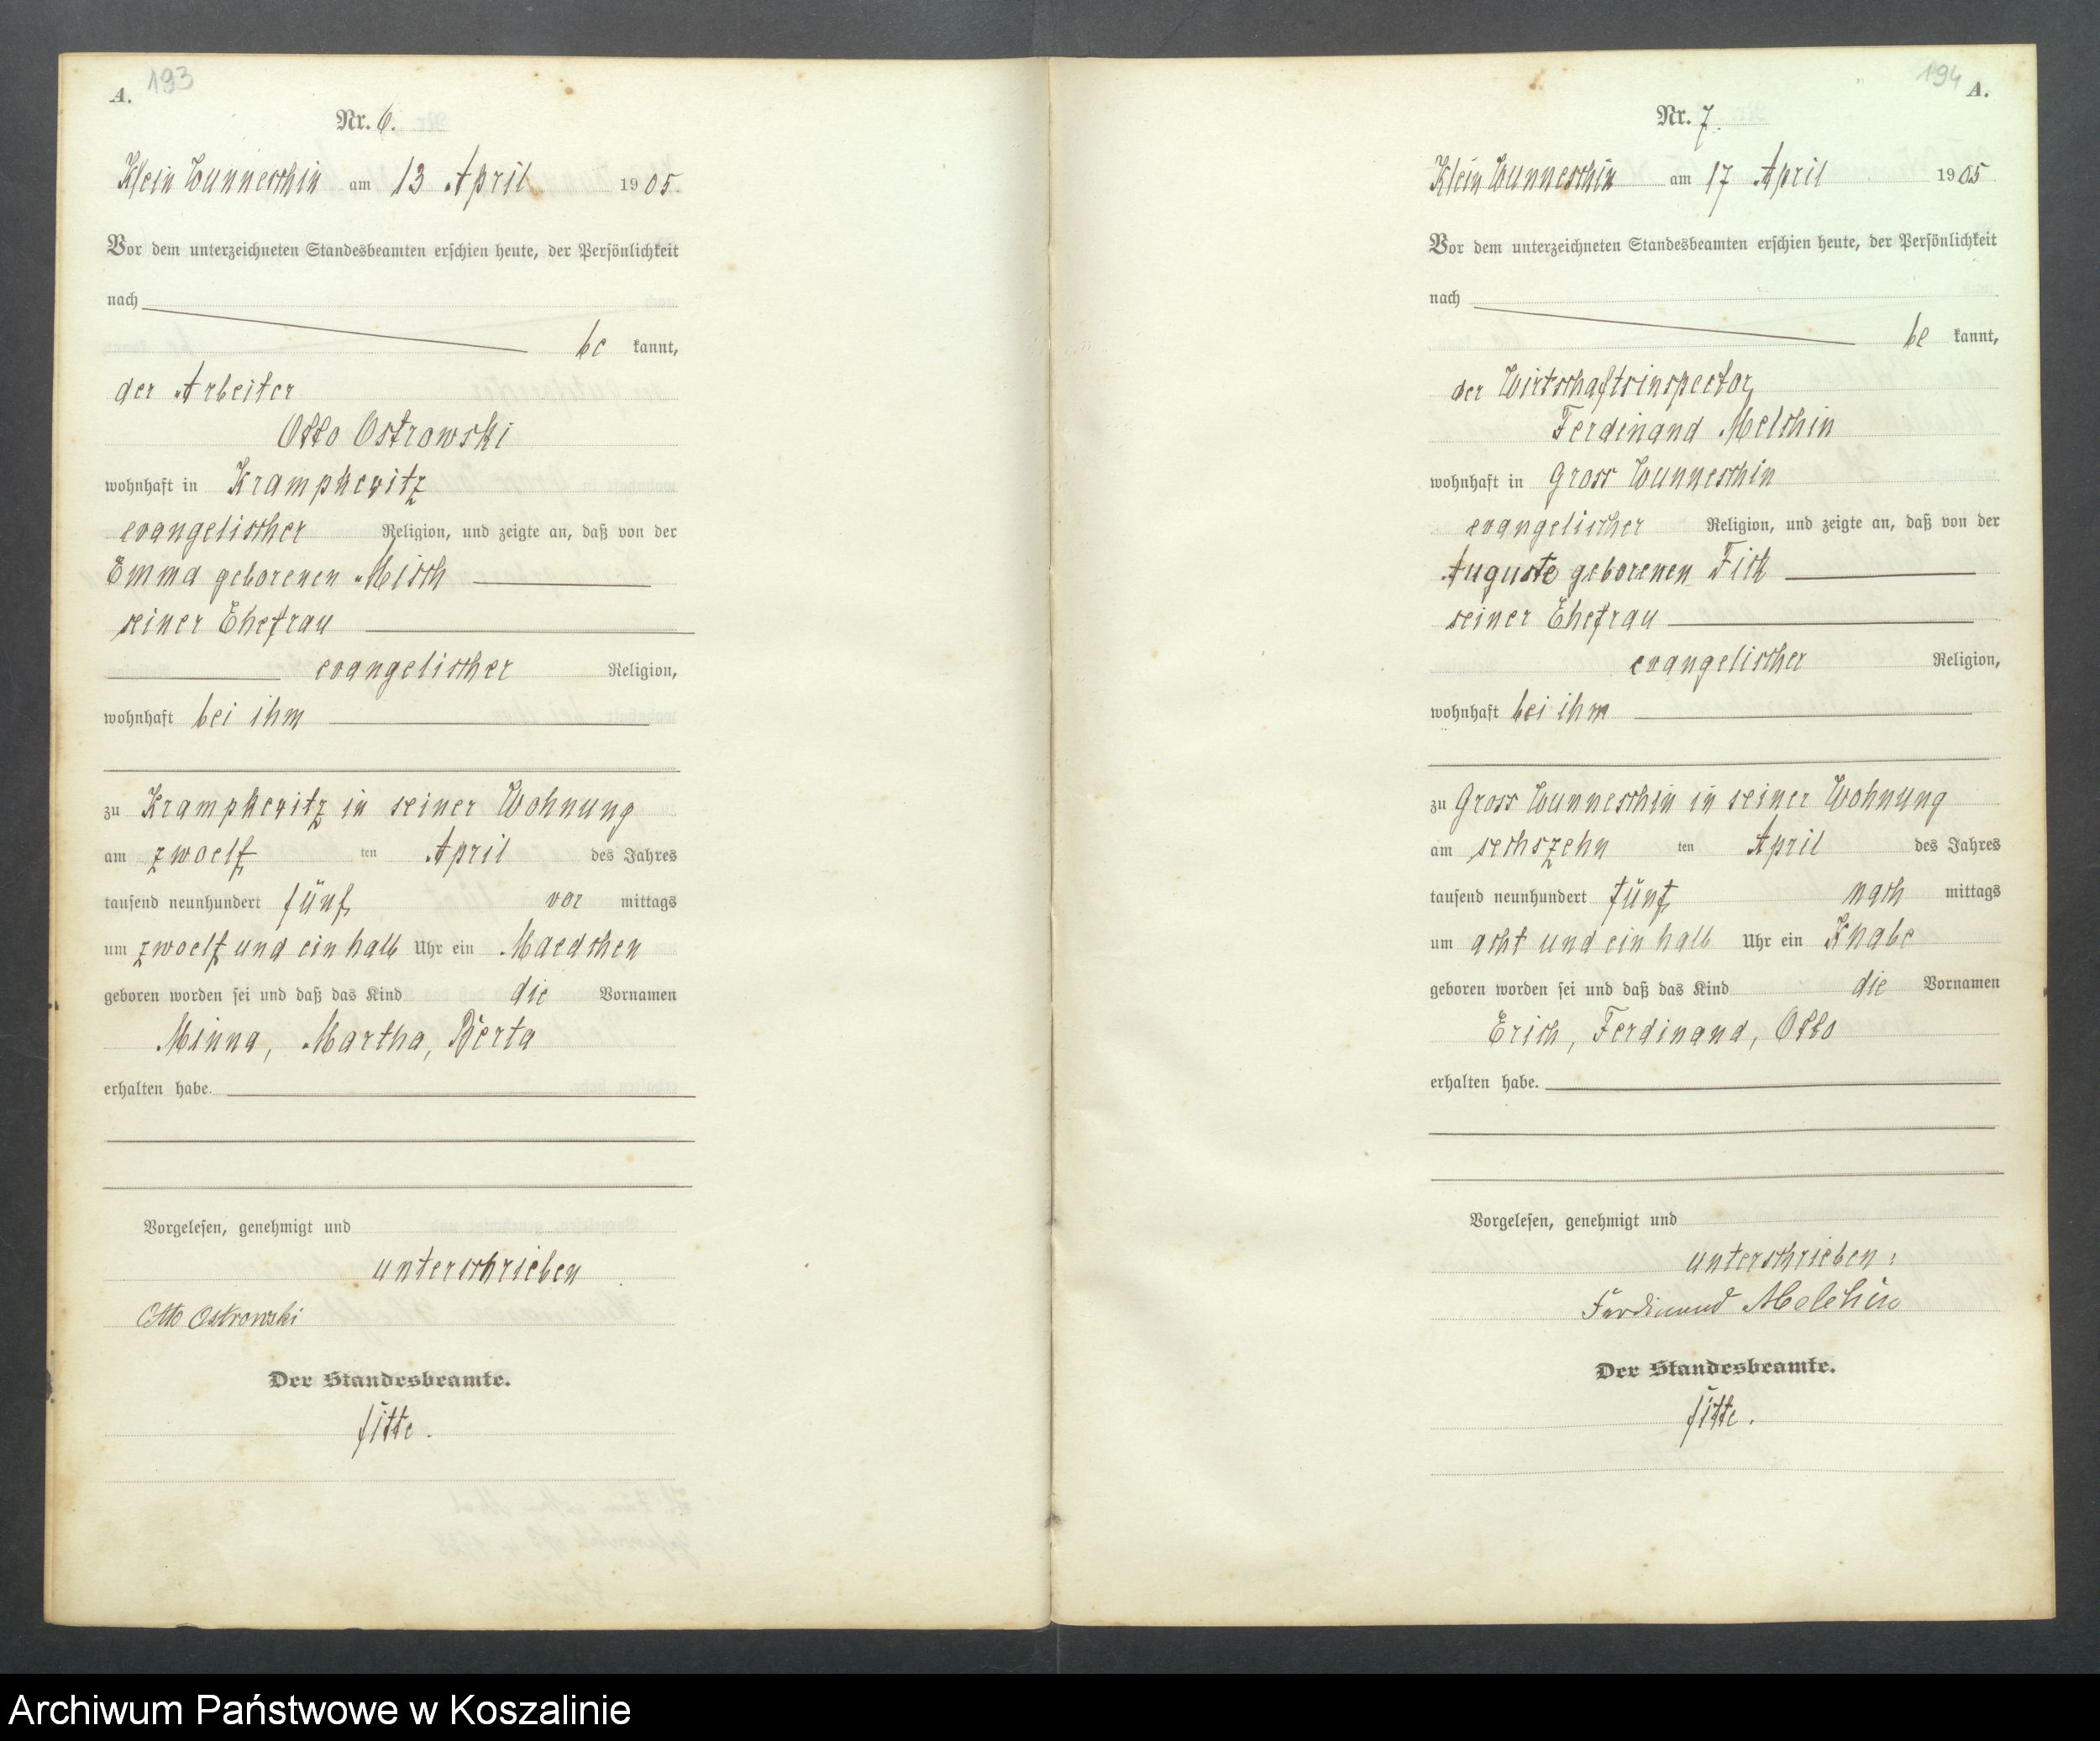 A. 193
Nr. 6.
Klein Wunneschin am 13 April 1905.
Vor dem unterzeichneten Standesbeamten erschien heute, der Persönlichkeit
nach
be kannt,
der Arbeiter
Otto Ostrowski
wohnhaft in Krampkewitz
evangelischer Religion, und zeigte an, daß von der
Emma geborenen Misch
seiner Ehefrau
evangelischer Religion,
wohnhaft bei ihm
zu Krampkewitz in seiner Wohnung
am zwoelf ten April des Jahres
tausend neunhundert fünf vor mittags
um zwoelf und ein halb Uhr ein Maedchen
geboren worden sei und daß das Kind die Vornamen
Minna, Martha, Berta
erhalten habe.
Vorgelesen, genehmigt und
unterschrieben
Otto Ostrowski
Der Standesbeamte.
194 A.
Nr. 7.
Klein Wunneschin am 17 April 1905
Vor dem unterzeichneten Standesbeamten erschien heute, der Persönlichkeit
nach
be kannt,
der Wirtschaftsinspector
Ferdinand Melchin
wohnhaft in Gross Wunneschin
evangelischer Religion, und zeigte an, daß von der
Auguste geborenen Fick
seiner Ehefrau
evangelischer Religion,
wohnhaft bei ihm
zu Gross Wunneschin in seiner Wohnung
am sechszehn ten April des Jahres
tausend neunhundert fünf nach mittags
um acht und ein halb Uhr ein Knabe
geboren worden sei und daß das Kind die Vornamen
Erich, Ferdinand, Otto
erhalten habe.
Vorgelesen, genehmigt und
unterschrieben:
Ferdinand Melchin
Der Standesbeamte.
Archiwum Państwowe w Koszalinie